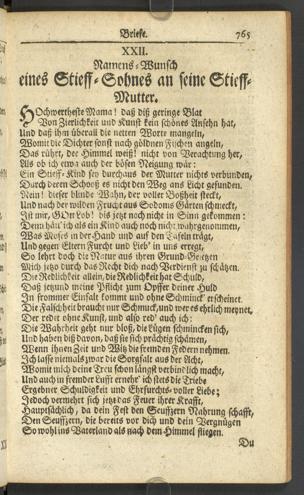 Briefe.
765
XXII.
Namens-Wunsch
eines Stieff-Sohnes an seine Stieff-
Mutter.
HOchwertheste Mama! daß diß geringe Blat
Von Zierlichkeit und Kunst kein schönes Ansehn hat,
Und daß ihm überall die netten Worte mangeln,
Womit die Dichter sonst nach göldnen Fischen angeln,
Das rührt, der Himmel weiß! nicht von Verachtung her,
Als ob ich etwa auch der bösen Neigung wär:
Ein Stieff-Kind sey durchaus der Mutter nichts verbunden,
Durch deren Schooß es nicht den Weg ans Licht gefunden.
Nein! dieser blinde Wahn, der voller Boßheit steckt,
Und nach der wilden Frucht aus Sodoms Gärten schmeckt,
Ist mir, GOtt Lob! bis jetzt noch nicht in Sinn gekommen:
Denn hätt' ich als ein Kind auch noch nicht wahrgenommen,
Was Moses in der Hand und auf den Tafeln trägt,
Und gegen Eltern Furcht und Lieb' in uns erregt,
So lehrt doch die Natur aus ihren Grund-Gesetzen
Mich jetzo durch das Recht dich nach Verdienst zu schätzen.
Die Redlichkeit allein, die Redlichkeit hat Schuld,
Daß jetzund meine Pflicht zum Opffer deiner Huld
In frommer Einfalt kommt und ohne Schminck' erscheinet.
Die Falschheit braucht nur Schmuck, und wer es ehrlich meynet,
Der redet ohne Kunst, und also red' auch ich:
Die Wahrheit geht nur bloß, die Lügen schmincken sich,
Und haben diß davon, daß sie sich prächtig schämen,
Wenn ihnen Zeit und Witz die fremden Federn nehmen.
Ich lasse niemals zwar die Sorgfalt aus der Acht,
Womit mich deine Treu schon längst verbindlich macht,
Und auch in fremder Lufft ernehr' ich stets die Triebe
Ergebner Schuldigkeit und Ehrfurchts-voller Liebe;
Jedoch vermehrt sich jetzt das Feuer ihrer Krafft,
Hauptsächlich, da dein Fest den Seuffzern Nahrung schafft,
Den Seuffzern, die bereits vor dich und dein Vergnügen
So wohl ins Vaterland als nach dem Himmel fliegen.
Du